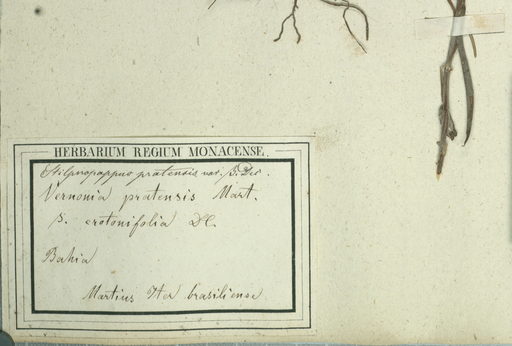 HERBARIUM REGIUM MONACENSE.
Stilpnopappus pratensis var. β. Dec.
Vernonia pratensis Mart.
β. crotonifolia DC.
Bahia
Martius Iter brasiliense